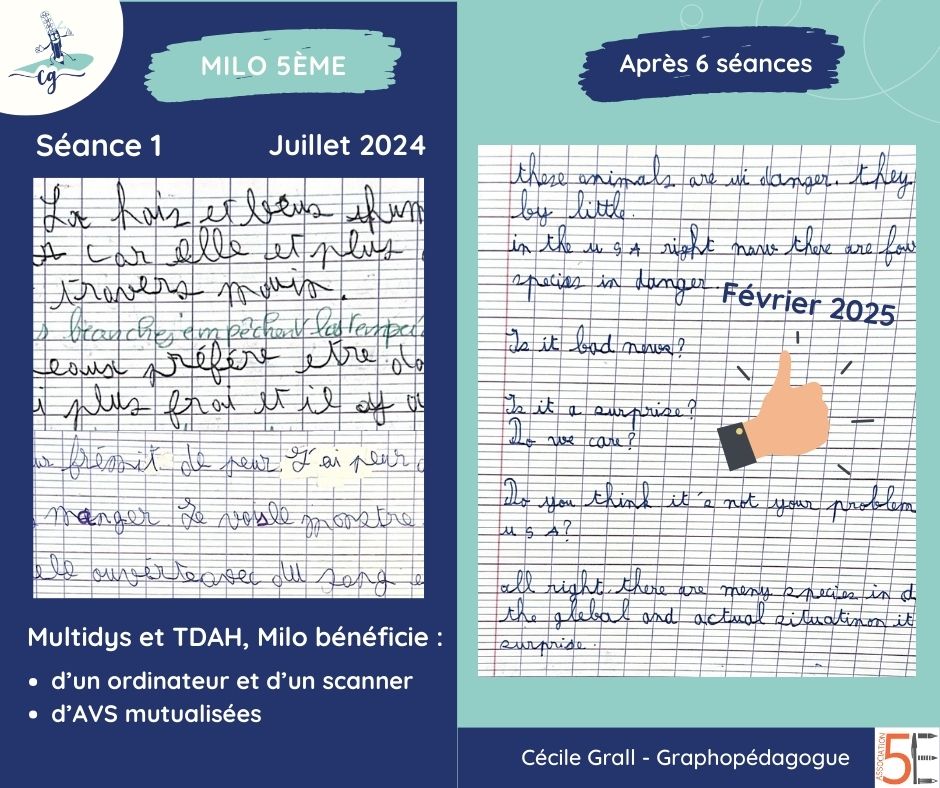 cg
MILO 5ÈME
Séance 1
Juillet 2024
La hais et bous
A car elle et plus
travers mouin.
s branches empêchent las tempé
eaux préfère etre do
i plus frai et il y a
ur frémit de peur. J'ai peur d
manger. Le vosle monstre
ele ouverte avec du sang e
Multidys et TDAH, Milo bénéficie :
• d'un ordinateur et d'un scanner
• d'AVS mutualisées
Après 6 séances
these animals are in danger. they
by little.
in the u s A right now there are four
species in danger.
Février 2025
Is it bad news?
Is it a surprise?
Do we care?
Do you think it's not your problem
u s A?
all right. there are meny species in d
the glebal and actual situatinon it
surprise.
Cécile Grall - Graphopédagogue
ASSOCIATION
5E